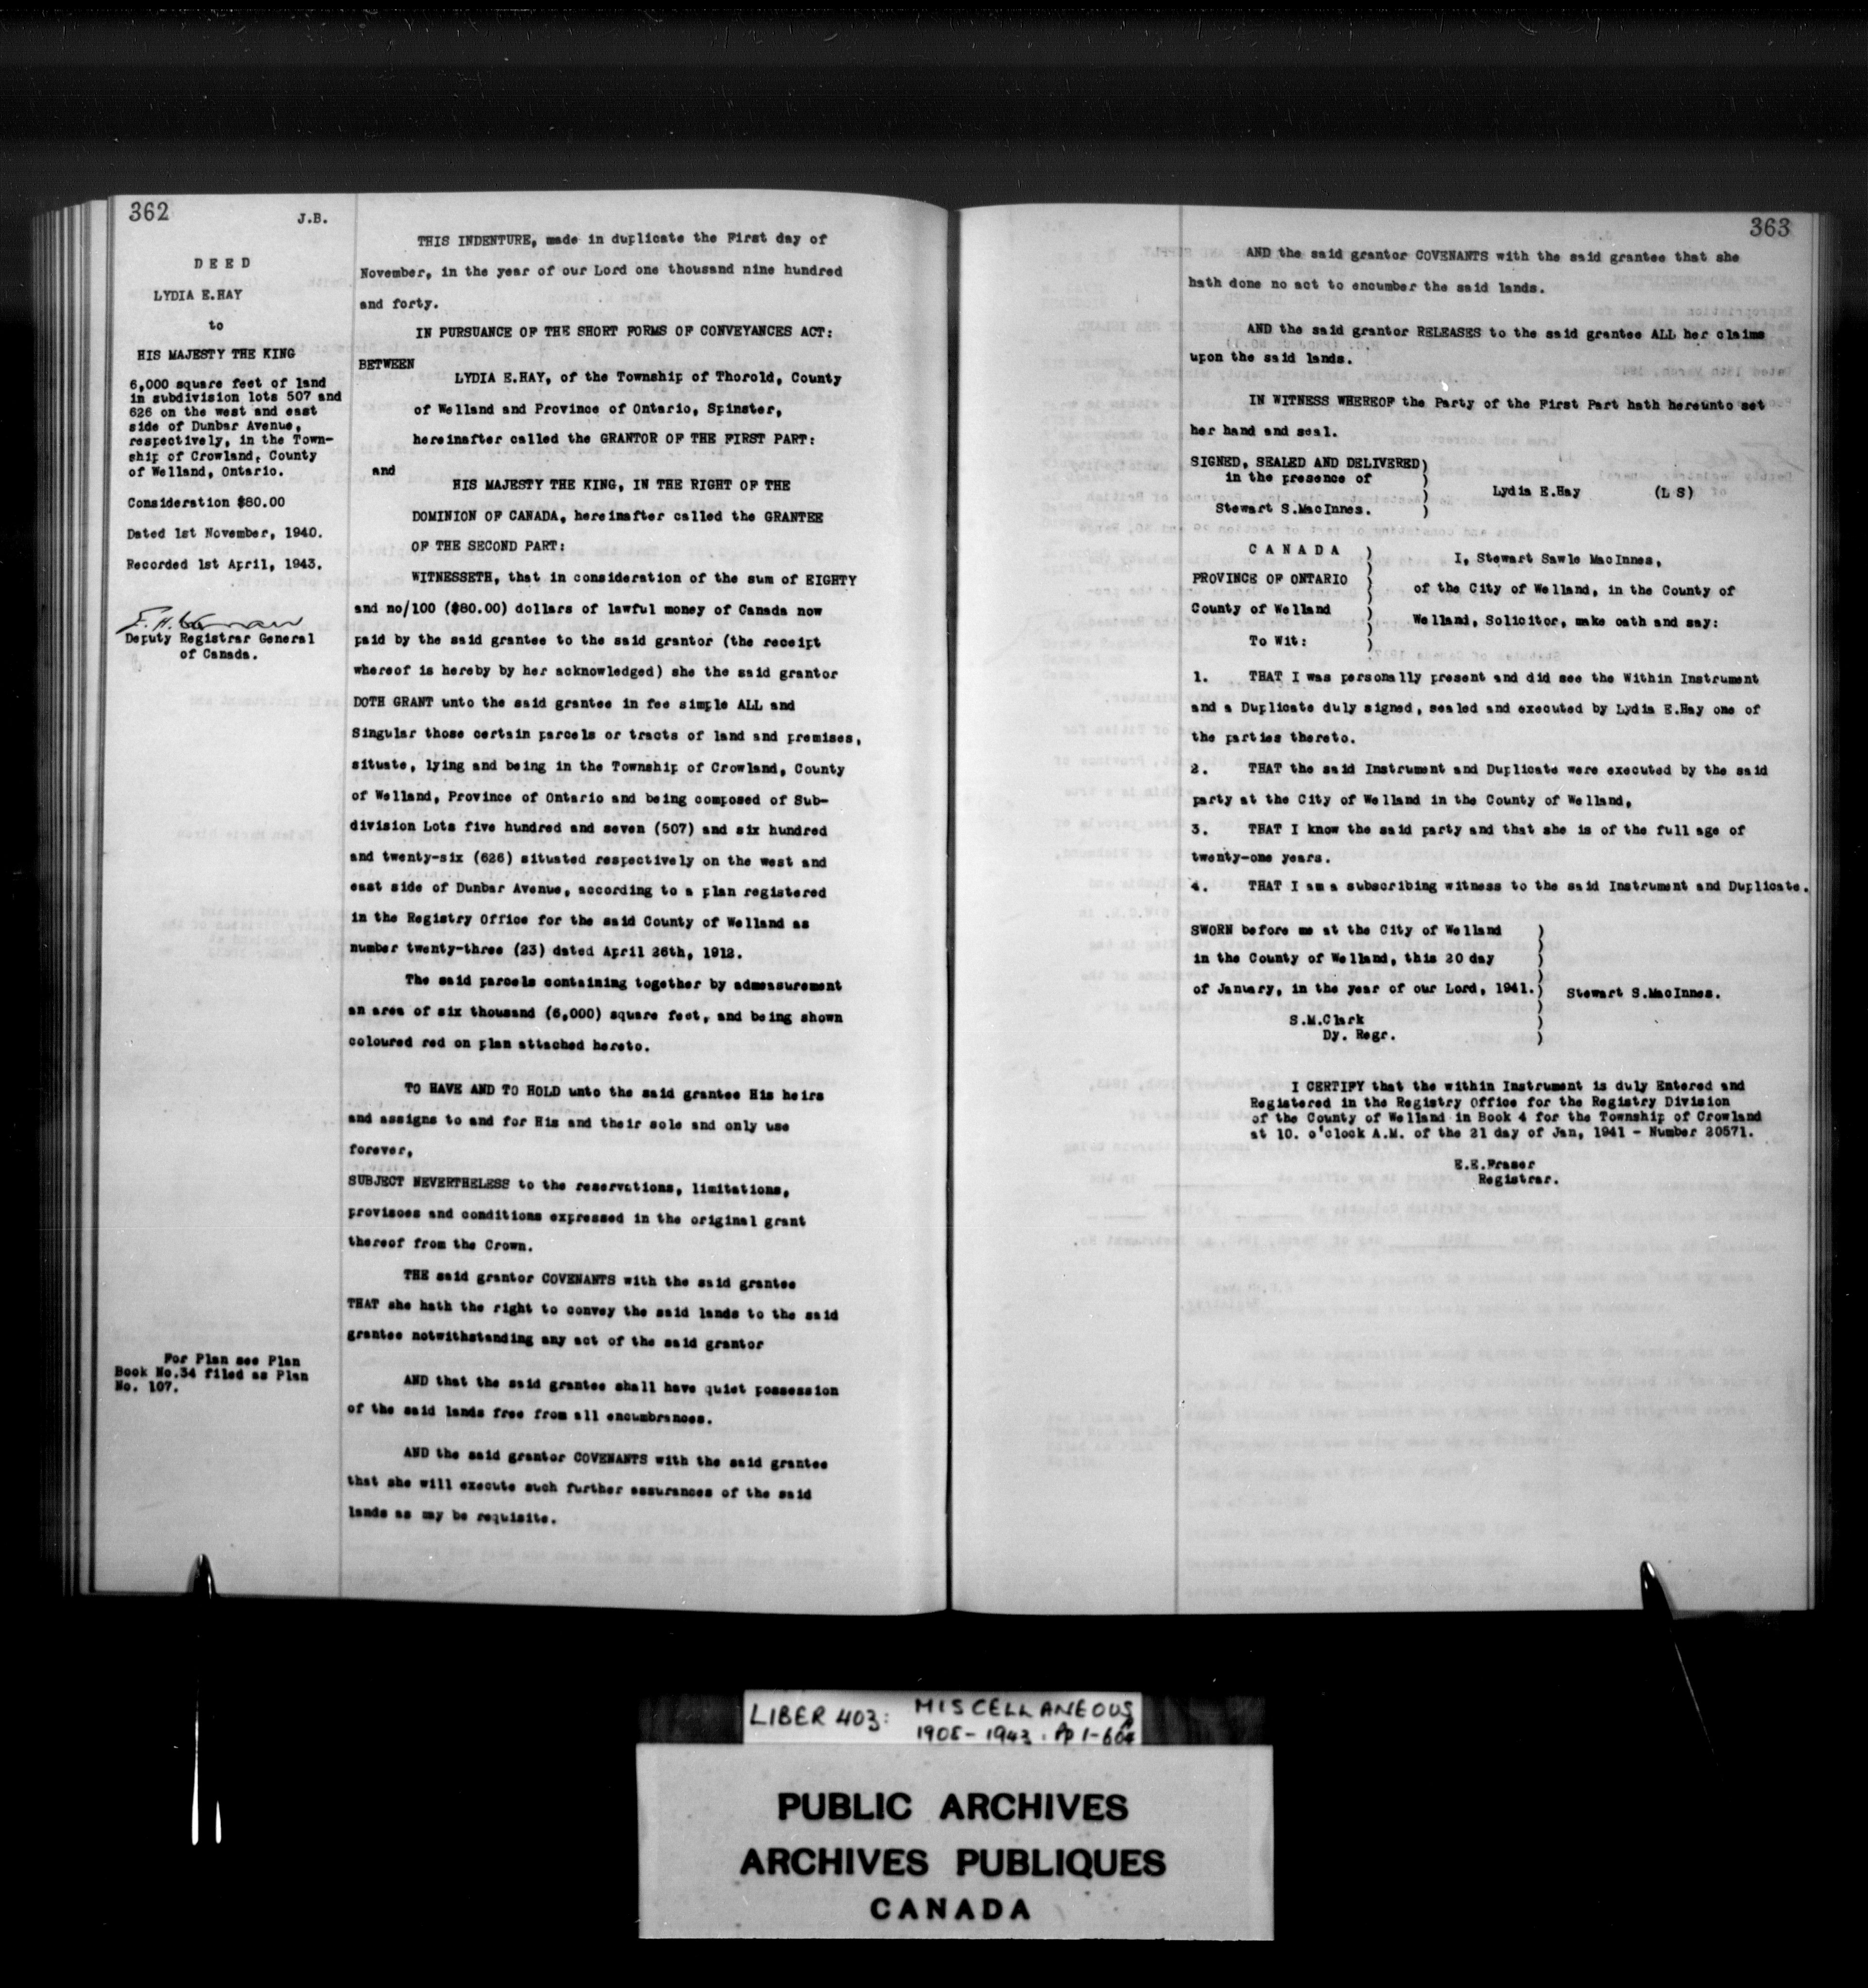 362
J.B.
D E E D
LYDIA E.HAY
to
HIS MAJESTY THE KING
6,000 square feet of land
in subdivision lots 507 and
626 on the west and east
side of Dunbar Avenue,
respectively, in the Town-
ship of Crowland, County
of Welland, Ontario.
Consideration $80.00
Dated 1st November, 1940.
Recorded 1st April, 1943.
Deputy Registrar General
of Canada.
For Plan see Plan
Book No.34 filed as Plan
No. 107.
THIS INDENTURE, made in duplicate the First day of
November, in the year of our Lord one thousand nine hundred
and forty.
IN PURSUANCE OF THE SHORT FORMS OF CONVEYANCES ACT:
BETWEEN
LYDIA E.HAY, of the Township of Thorold, County
of Welland and Province of Ontario, Spinster,
hereinafter called the GRANTOR OF THE FIRST PART:
and
HIS MAJESTY THE KING, IN THE RIGHT OF THE
DOMINION OF CANADA, hereinafter called the GRANTEE
OF THE SECOND PART:
WITNESSETH, that in consideration of the sum of EIGHTY
and no/100 ($80.00) dollars of lawful money of Canada now
paid by the said grantee to the said grantor (the receipt
whereof is hereby by her acknowledged) she the said grantor
DOTH GRANT unto the said grantee in fee simple ALL and
Singular those certain parcels or tracts of land and premises,
situate, lying and being in the Township of Crowland, County
of Welland, Province of Ontario and being composed of Sub-
division Lots five hundred and seven (507) and six hundred
and twenty-six (626) situated respectively on the west and
east side of Dunbar Avenue, according to a plan registered
in the Registry Office for the said County of Welland as
number twenty-three (23) dated April 26th, 1912.
The said parcels containing together by admeasurement
an area of six thousand (6,000) square feet, and being shown
coloured red on plan attached hereto.
TO HAVE AND TO HOLD unto the said grantee His heirs
and assigns to and for His and their sole and only use
forever,
SUBJECT NEVERTHELESS to the reservations, limitations,
provisoes and conditions expressed in the original grant
thereof from the Crown.
THE said grantor COVENANTS with the said grantee
THAT she hath the right to convey the said lands to the said
grantee notwithstanding any act of the said grantor
AND that the said grantee shall have quiet possession
of the said lands free from all encumbrances.
AND the said grantor COVENANTS with the said grantee
that she will execute such further assurances of the said
lands as may be requisite.
363
AND the said grantor COVENANTS with the said grantee that she
hath done no act to encumber the said lands.
AND the said grantor RELEASES to the said grantee ALL her claims
upon the said lands.
IN WITNESS WHEREOF the Party of the First Part hath hereunto set
her hand and seal.
SIGNED, SEALED AND DELIVERED)
in the presence of )
) Lydia E.Hay (L S)
Stewart S.MacInnes. )
C A N A D A ) I, Stewart Sawle MacInnes,
PROVINCE OF ONTARIO ) of the City of Welland, in the County of
County of Welland ) Welland, Solicitor, make oath and say:
To Wit: )
1. THAT I was personally present and did see the Within Instrument
and a Duplicate duly signed, sealed and executed by Lydia E.Hay one of
the parties thereto.
2. THAT the said Instrument and Duplicate were executed by the said
party at the City of Welland in the County of Welland,
3. THAT I know the said party and that she is of the full age of
twenty-one years.
4. THAT I am a subscribing witness to the said Instrument and Duplicate.
SWORN before me at the City of Welland )
in the County of Welland, this 20 day )
of January, in the year of our Lord, 1941.) Stewart S.MacInnes.
S.M.Clark )
Dy. Regr. )
I CERTIFY that the within Instrument is duly Entered and
Registered in the Registry Office for the Registry Division
of the County of Welland in Book 4 for the Township of Crowland
at 10. o'clock A.M. of the 21 day of Jan, 1941 - Number 20571.
E.E.Fraser
Registrar.
LIBER 403: MISCELLANEOUS
1908-1943. Pp 1-
PUBLIC ARCHIVES
ARCHIVES PUBLIQUES
CANADA